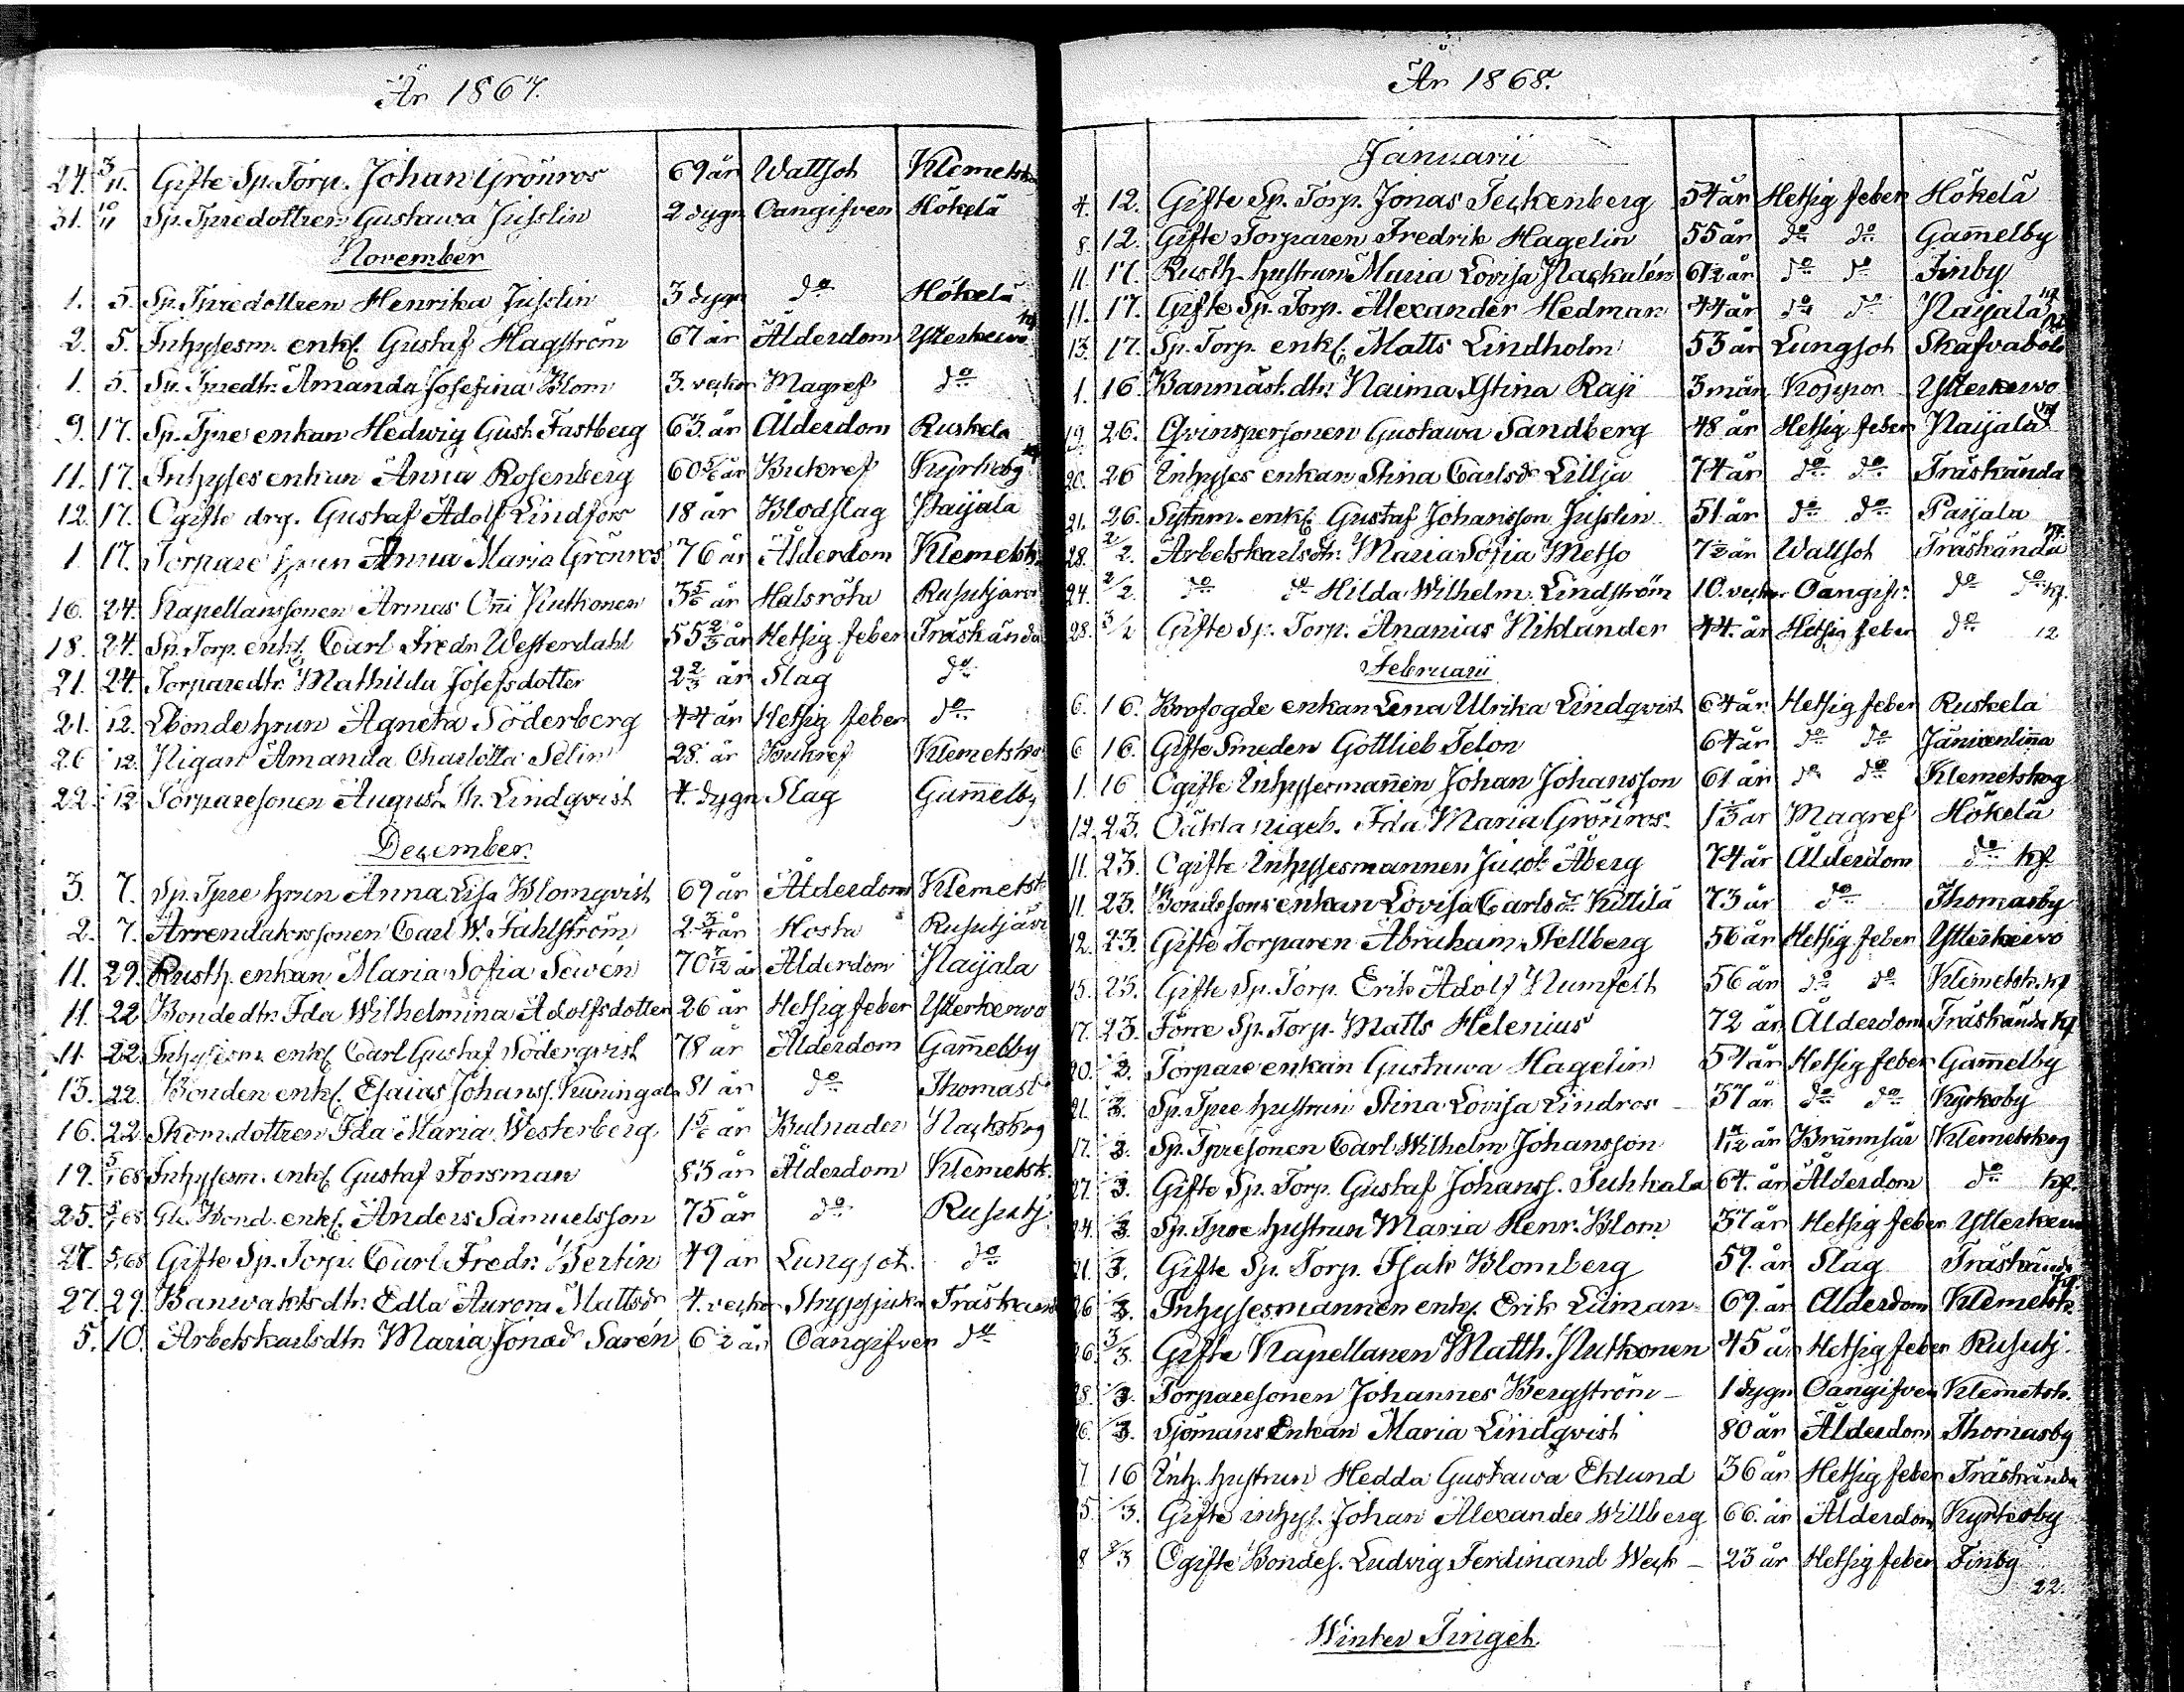 År 1867.
24. 3/11. Gifte Sp. Torp. Johan Grönros 69 år Wattsot Klemetsk
31. 10/11 Sp. Tpredottren Gustawa Jusslin 2 dygn Oangifven Hökelä
November
1. 5. Sp. Tpredottren Henrika Jusslin 3 dygn do Hökelä
2. 5. Inhysesm. enkl. Gustaf Hagström 67 år Ålderdom Ytterkerwo
1. 5. Sp. Tpredtr. Amanda Josefina Blom 3. veckor Magref do
9. 17. Sp. Tpre enkan Hedwig Gust. Fastberg 63 år Ålderdom Ruskela
11. 17. Inhyses enkan Anna Rosenberg 60 5/6 år Bukref Kyrkoby
12. 17. Ogifte drg. Gustaf Adolf Lindfors 18 år Blodslag Paijala
1. 17. Torpare hrun Anna Maria Grönros 76 år Ålderdom Klemetsk.
16. 24. Kapellanssonen Armas Oni Nutkonen 3 5/6 år Halsröta Rusutjärvi
18. 24. Sp. Torp. enkl. Carl Fredr. Westerdahl 55 2/3 år Hetsig feber Träskända
21. 24. Torparedtr. Mathilda Josefsdotter 2 2/3 år Slag do
21. 12. Lbonde hrun Agneta Söderberg 44 år Hetsig feber do
26 12. Pigan Amanda Charlotta Selin 28 år Bukref Klemetsko
22. 12 Torparesonen August Th. Lindqvist 4. dygn Slag Gammelby
December.
3. 7. Sp. Tpre hrun Anna Lisa Blomqvist 69 år Ålderdom Klemetsk
2. 7. Arrendatorssonen Carl W. Fahlström 2 3/4 år Hosta Rusutjärvi
11. 29. Rusth. enkan Maria Sofia Sewén 70 7/12 år Ålderdom Naijala
11. 22 Bondedtr. Ida Wilhelmina Adolfsdotter 26 år Hetsig feber Ytterkerwo
11. 22. Inhysesm. enkl. Carl Gustaf Söderqvist 78 år Ålderdom Gammelby
13. 22. Bonden enkl. Esaias Johanss. Kuningala 81 år do Thomasb
16. 22. Skom. dottren Ida Maria Westerberg 1 5/6 år Bulnader Nackskog
19. 5/1 68 Inhysesm. enkl. Gustaf Forsman 83 år Ålderdom Klemetsk.
25. 5/1 68 Gl. Bond. enkl. Anders Samuelsson 75 år do Rusutj.
27. 5/1 68 Gifte Sp. Torp. Carl Fredr. Bertin 49 år Lungsot. do
27. 29. Banwaktsdtr. Edla Aurora Mattsdr 4. veckor Strypsjuka Träskända
5. 10. Arbetskarlsdtr. Maria Jonasdr Sarén 6 1/2 år Oangifven do
År 1868.
Januarii
4. 12. Gifte Sp. Torp. Jonas Teckenberg 54 år Hetsig feber Hökelä
8. 12. Gifte Torparen Fredrik Hagelin 55 år do do Gammelby
11. 17. Rusth. hustrun Maria Lovisa Nackulén 61 1/2 år do do Finby
11. 17. Gifte Sp. Torp. Alexander Hedman 44 år do do Naijala
13. 17. Sp. Torp. enkl. Matts Lindholm 53 år Lungsot Skafvaböle
1. 16. Banmäst. dtr. Naima Xstina Raji 3 mån Koppor Ytterkerwo
19. 26. Qvinspersonen Gustawa Sandberg 48 år Hetsig feber Naijala
20. 26 Inhyses enkan Stina Carlsdr Lillja 74 år do do Träskända
21. 26. Sytnm. enkl. Gustaf Johansson Jusslin 51 år do do Paijala
28. 2/2. Arbetskarlsdtr. Maria Sofia Metso 7 1/2 år Wattsot Träskända
24. 2/2. do do Hilda Wilhelm. Lindström 10. veckor Oangifr. do do kf.
28. 3/2 Gifte Sp. Torp. Ananias Niklander 44. år Hetsig feber do 12
Februarii
6. 16. Brofogde enkan Lena Ulrika Lindqvist 64 år Hetsig feber Ruskela
6 16. Gifte Smeden Gottlieb Telon 64 år do do Jänixenlinna
1. 16 Ogifte Inhysesmannen Johan Johansson 61 år do do Klemetskog
12. 23. Oäkta pigeb. Ida Maria Grönros 1 1/3 år Magref Hökelä
11. 23. Ogifte Inhysesmannen Jacob Åberg 74 år Ålderdom do kf.
11. 23. Bondesons enkan Lovisa Carlsdr Kittilä 73 år do Thomasby
12. 23. Gifte Torparen Abraham Stellberg 56 år Hetsig feber Ytterkerwo
15. 23. Gifte Sp. Torp. Erik Adolf Numfelt 56 år do do Klemetsk. kf
17. 23. Förre Sp. Torp. Matts Helenius 72 år Ålderdom Träskända kf
20. 3. Torpare enkan Gustawa Hagelin 54 år Hetsig feber Gammelby
21. 3. Sp. Tpre hustrun Stina Lovisa Lindros 37 år do do Kyrkoby
17. 3. Sp. Tpresonen Carl Wilhelm Johansson 1 /12 år Brännsår Klemetskog
27. 3. Gifte Sp. Torp. Gustaf Johanss. Juhkala 64. år Ålderdom do kf.
24. 3. Sp. Tpre hustrun Maria Henr. Blom 37 år Hetsig feber Ytterkerwo
21. 3. Gifte Sp. Torp. Isak Blomberg 59. år Slag Träskända
26 3. Inhysesmannen enkl. Erik Liiman 69. år Ålderdom Klemetsk.
26. 3/3. Gifte Kapellanen Matth. Nutkonen 45 år Hetsig feber Rusutj.
28. 3. Torparesonen Johannes Bergström 1 dygn Oangifven Klemetsk.
26. 3. Sjömans Enkan Maria Lindqvist 80 år Ålderdom Thomasby
7 16 Inh. hustrun Hedda Gustawa Eklund 36 år Hetsig feber Träskända
5. /3. Gifte inhys. Johan Alexander Willberg 66. år Ålderdom Kyrkoby
8 3/3 Ogifte Bondes. Ludvig Ferdinand Weck 23 år Hetsig feber Finby
22.
Winter Tinget.